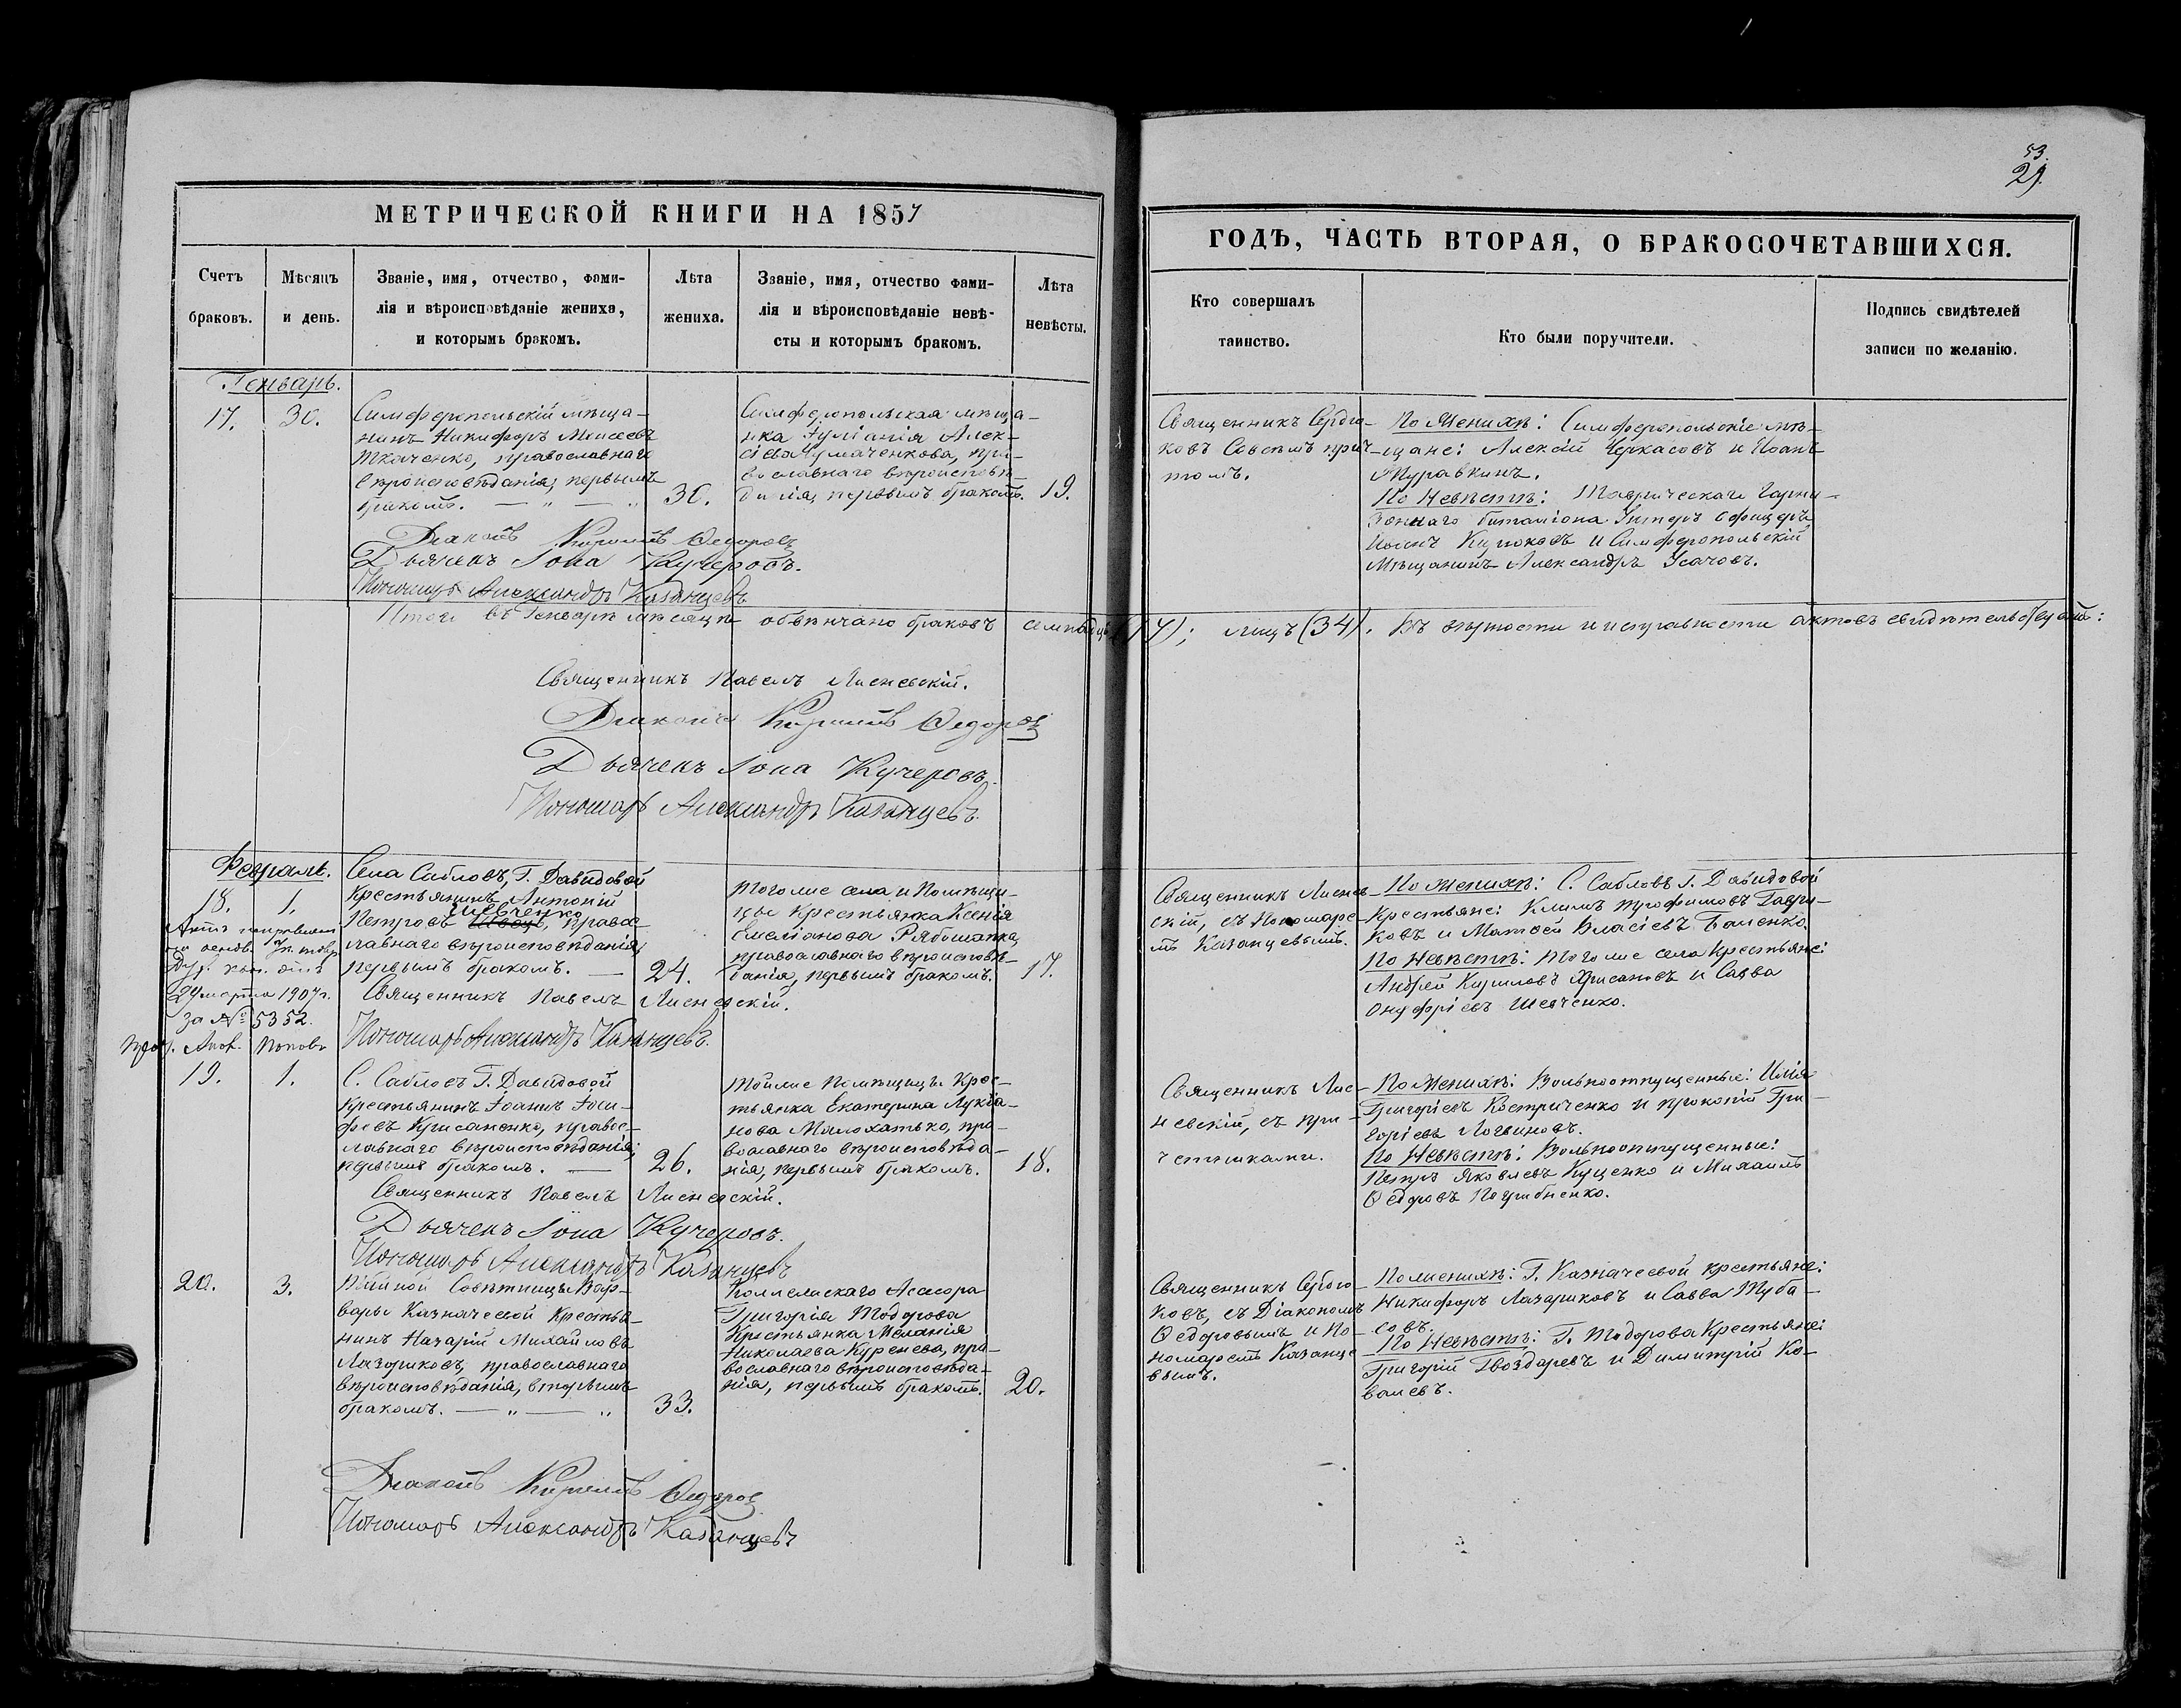 53.
29.
МЕТРИЧЕСКОЙ КНИГИ НА 1857
ГОДЪ, ЧАСТЬ ВТОРАЯ, О БРАКОСОЧЕТАВШИХСЯ.
Счетъ
браковъ.
Мѣсяцъ
и день.
Званіе, имя, отчество, фами-
лія и вѣроисповѣданіе жениха,
и которымъ бракомъ.
Лѣта
жениха.
Званіе, имя, отчество фами-
лія и вѣроисповѣданіе невѣ-
сты и которымъ бракомъ.
Лѣта
невѣсты.
Кто совершалъ
таинство.
Кто были поручители.
Подпись свидѣтелей
записи по желанію.
Генварь.
17.
30.
Симферопольскій мѣща-
нинъ Никифоръ Моисеевъ
Ткаченко, православнаго
вѣроисповѣданія, первымъ
бракомъ. — „ — „
30.
Симферопольская мѣща-
нка Іуліанія Алек-
сіева Чумаченкова, пра-
вославнаго вѣроисповѣ-
данія, первымъ бракомъ.
19.
Священникъ Сербо-
ковъ Совсѣмъ прич-
томъ.
По Женихѣ: Симферопольскіе мѣ-
щане: Алексій Черкасовъ и Иоанъ
Журавкинъ.
По Невѣстѣ: Таврическаго Гарни-
зоннаго баталіона Унтеръ офицеръ
Иванъ Казюковъ и Симферопольскій
Мѣщанинъ Александръ Усачовъ.
Діаконъ Кириллъ Ѳедоровъ
Дьячекъ Іона Кучеровъ.
Пономарь Александръ Казанцевъ
Итого въ Генварѣ мѣсяцѣ обвѣнчано браковъ семнадцать (17); лицъ (34). Въ вѣрности и исправности актовъ свидѣтельствуютъ:
Священникъ Павелъ Лисневскій.
Діаконъ Кириллъ Ѳедоровъ
Дьячекъ Іона Кучеровъ.
Пономарь Александръ Казанцевъ.
Февраль.
18.
1.
Актъ исправленъ
на основ.
Дух. кон. отъ
29 марта 1907 г.
за № 5352.
Прот. Попов
Села Сабловъ, Г. Давидовой
Крестьянинъ Антоній
Шевченко
Петровъ Швецъ, правос-
лавнаго вѣроисповѣданія,
первымъ бракомъ. —
24.
Тогоже села и Помѣщи-
цы Крестьянка Ксенія
Емеліанова Рябошапка,
православнаго вѣроисповѣ-
данія, первымъ бракомъ.
17.
Священникъ Лиснев-
скій, съ Пономаре-
мъ Казанцевымъ.
По Женихѣ: С. Сабловъ Г. Давидовой
Крестьяне: Климъ Трофимовъ Гаври-
ковъ и Матѳей Власіевъ Баленко.
По Невѣстѣ: Тогоже села Крестьяне:
Андрей Кириловъ Хрисановъ и Савва
Онуфріевъ Шевченко.
Священникъ Павелъ Лисневскій.
Пономарь Александръ Казанцевъ.
19.
1.
С. Сабловъ Г. Давидовой
Крестьянинъ Іоаннъ Іоси-
фовъ Крисаненко, правос-
лавнаго вѣроисповѣданія;
первымъ бракомъ. —
26.
Тойже Помѣщицы Крес-
тьянка Екатерина Лукіа-
нова Малохатько, пра-
вославнаго вѣроисповѣда-
нія, первымъ бракомъ.
18.
Священникъ Лис-
невскій, съ при-
четниками.
По Женихѣ: Вольноотпущенные: Илія
Григоріевъ Костриченко и Прокопій Гри-
горіевъ Логвиновъ.
По Невѣстѣ: Вольноотпущенные:
Петръ Яковлевъ Куценко и Михаилъ
Ѳедоровъ Погрибненко.
Священникъ Павелъ Лисневскій.
Дьячекъ Іона Кучеровъ.
Пономарь Александръ Казанцевъ
20.
3.
Тайной Совѣтницы Вар-
вары Казначеевой Крестья-
нинъ Назарій Михайловъ
Лазориковъ, православнаго
вѣроисповѣданія, вторымъ
бракомъ. — „ — „
33.
Коллежскаго Асессора
Григорія Тодорова
Крестьянка Меланія
Николаева Куренева, пра-
вославнаго вѣроисповѣда-
нія, первымъ бракомъ.
20.
Священникъ Сербо-
ковъ, съ Діакономъ
Ѳедоровымъ и По-
номаремъ Казанце-
вымъ.
По женихѣ: Г. Казначеевой крестьяне:
Никифоръ Лазариковъ и Савва Туба-
совъ.
По Невѣстѣ: Г. Тодорова Крестьяне:
Григорій Гвоздаревъ и Димитрій Ко-
валевъ.
Діаконъ Кириллъ Ѳедоровъ
Пономарь Александръ Казанцевъ